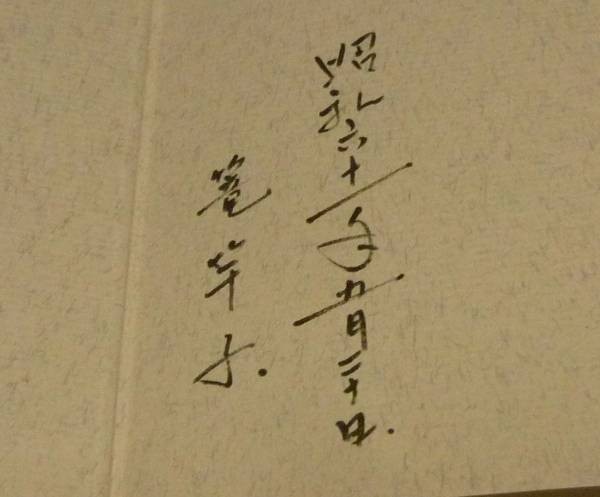 昭和六十一年九月二十日.
子.